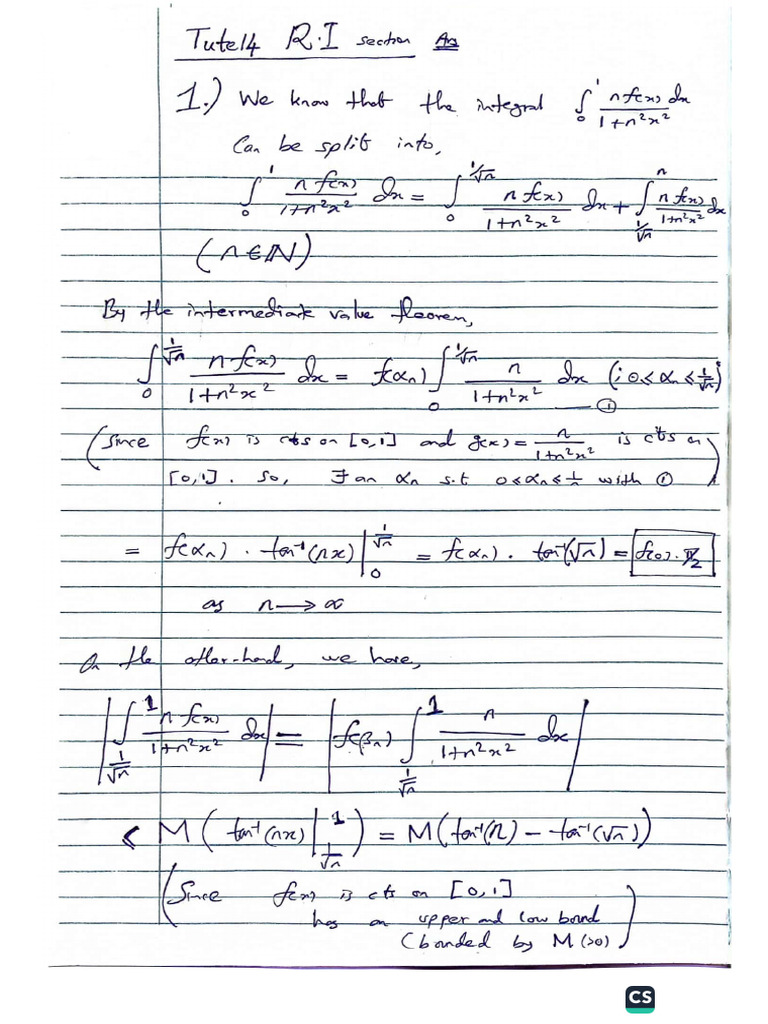 Tute14 R.I section Ans
1.) We know that the integral ∫₀¹ nf(x)/(1+n²x²) dx
Can be split into,
∫₀¹ nf(x)/(1+n²x²) dx = ∫₀^(1/√n) nf(x)/(1+n²x²) dx + ∫_(1/√n)^n nf(x)/(1+n²x²) dx
(n∈ℕ)
By the intermediate value theorem,
∫₀^(1/√n) n·f(x)/(1+n²x²) dx = f(αn) ∫₀^(1/√n) n/(1+n²x²) dx (; 0≤αn≤1/√n) — ①
(Since f(x) is cts on [0,1] and g(x) = n/(1+n²x²) is cts on
[0,1]. So, ∃ an αn s.t 0≤αn≤1/n with ①)
= f(αn) · tan⁻¹(nx) |₀^(1/√n) = f(αn) · tan⁻¹(√n) = f(0)·π/2
as n → ∞
On the other-hand, we have,
|∫_(1/√n)^1 n·f(x)/(1+n²x²) dx| = |f(βn) ∫_(1/√n)^1 n/(1+n²x²) dx|
≤ M(tan⁻¹(nx) |_(1/√n)^1) = M(tan⁻¹(n) − tan⁻¹(√n))
(Since f(x) is cts on [0,1]
has an upper and low bound
(bonded by M (>0))
CS